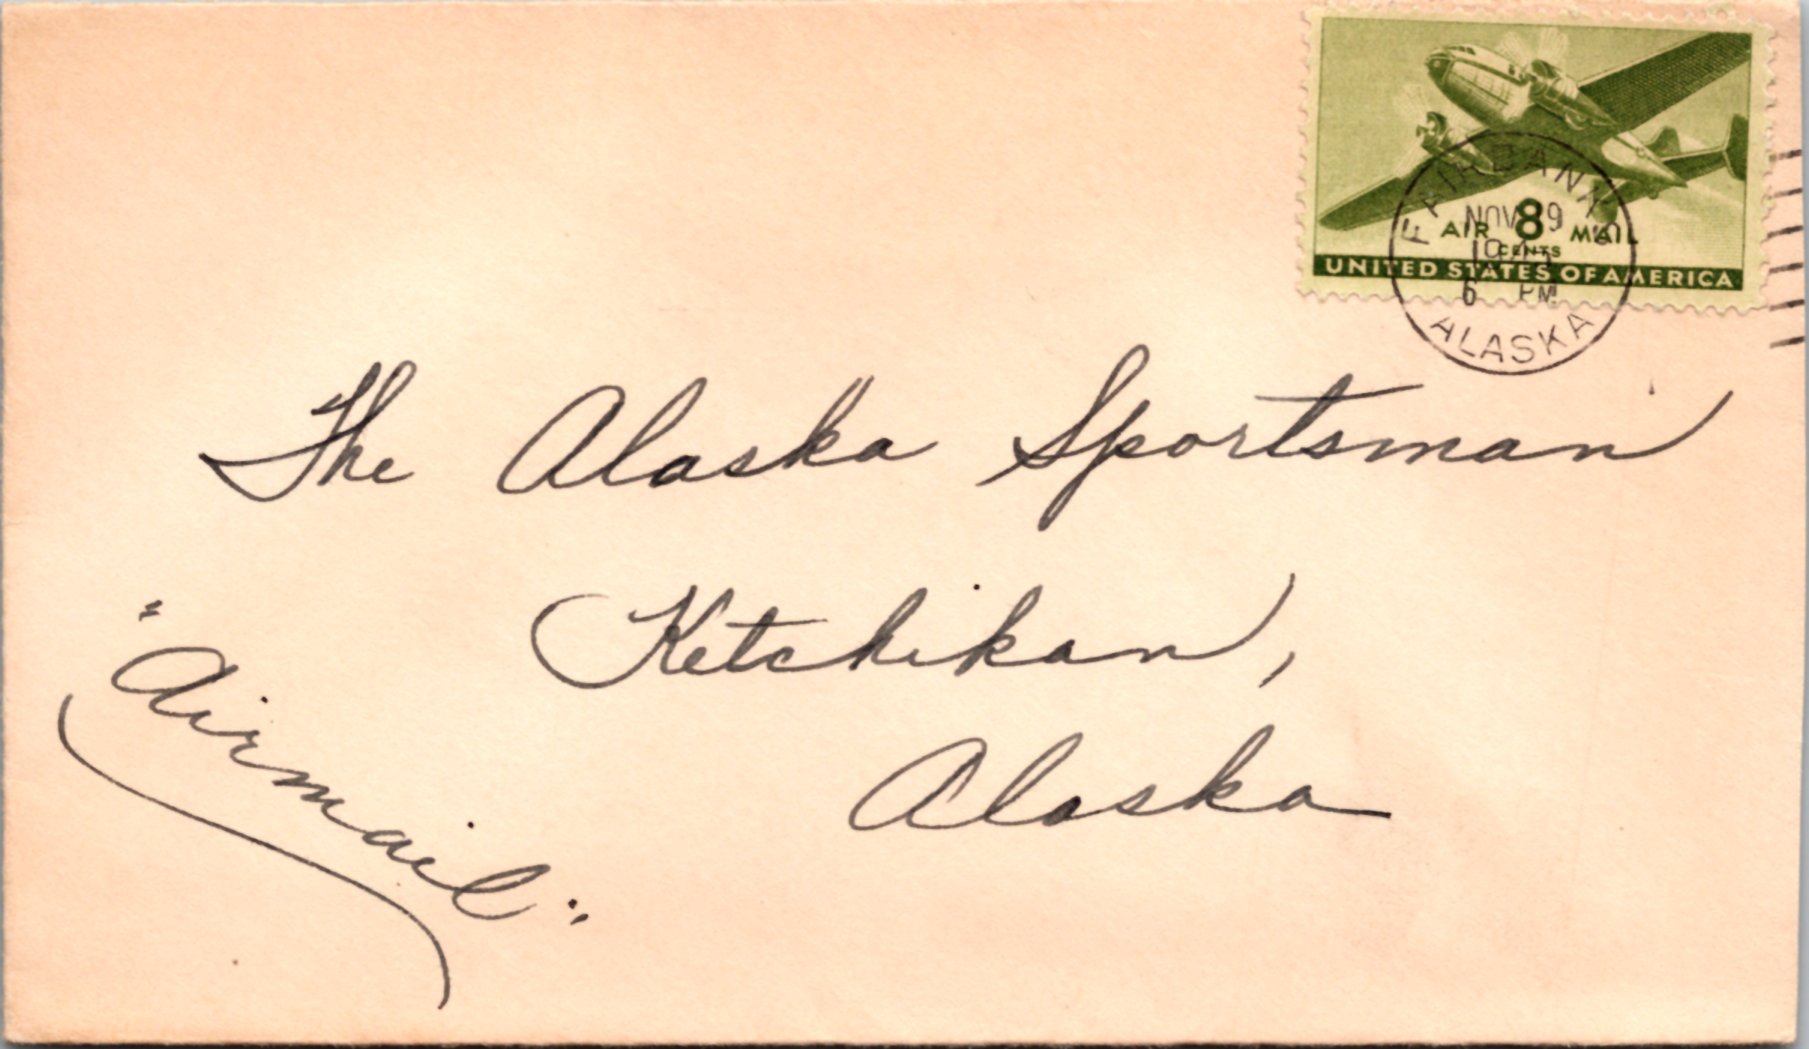 AIR 8 MAIL
CENTS
UNITED STATES OF AMERICA
FAIRBANKS
NOV 9
6 PM
ALASKA
The Alaska Sportsman
Ketchikan,
Alaska
"Airmail"